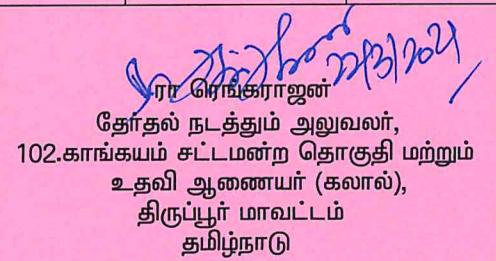 22/3/2021
ரா ரெங்கராஜன்
தேர்தல் நடத்தும் அலுவலர்,
102.காங்கயம் சட்டமன்ற தொகுதி மற்றும்
உதவி ஆணையர் (கலால்),
திருப்பூர் மாவட்டம்
தமிழ்நாடு